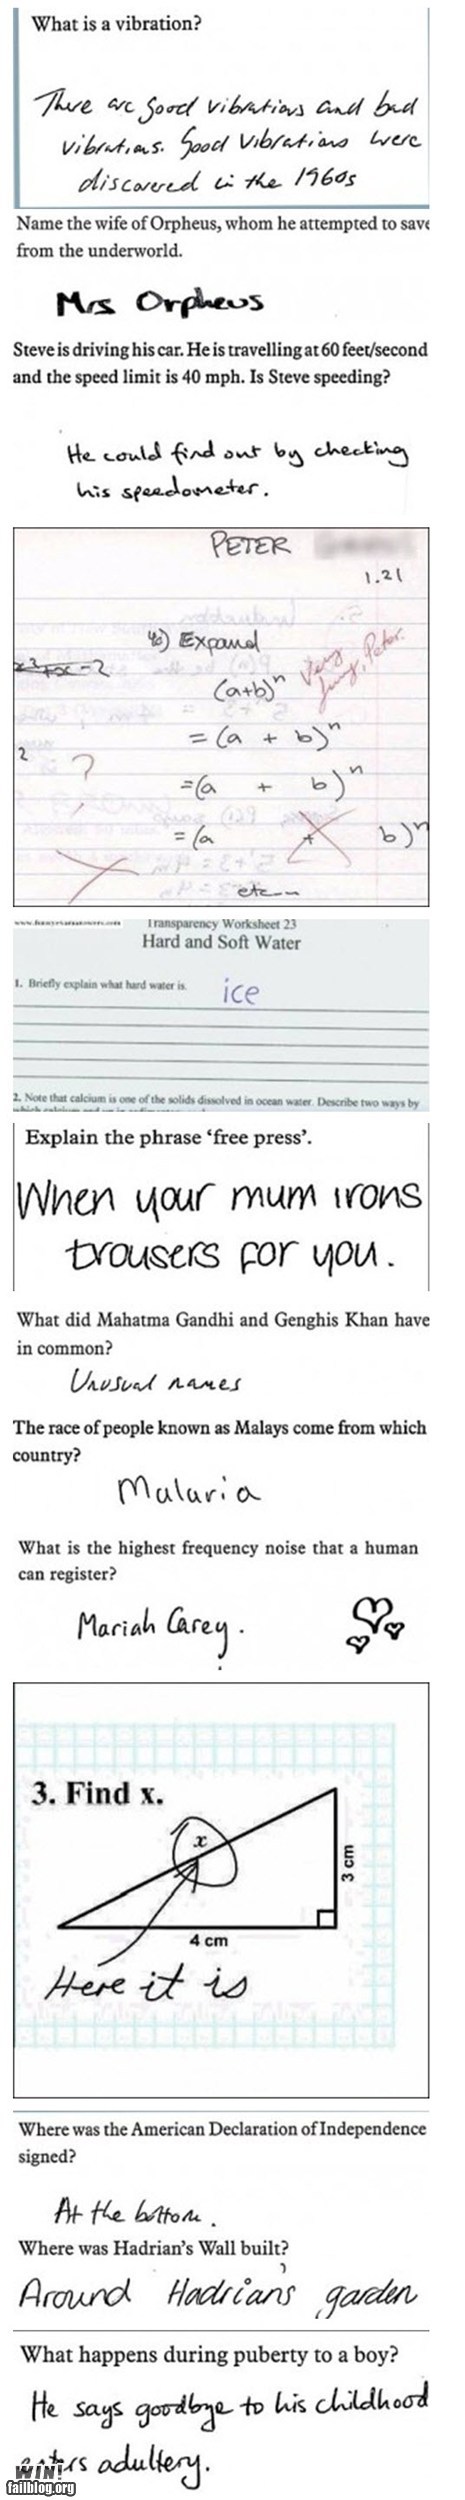 What is a vibration?
There are good vibrations and bad
vibrations. Good vibrations were
discovered in the 1960s
Name the wife of Orpheus, whom he attempted to save
from the underworld.
Mrs Orpheus
Steve is driving his car. He is travelling at 60 feet/second
and the speed limit is 40 mph. Is Steve speeding?
He could find out by checking
his speedometer.
PETER
1.21
4c) Expand
x²+x-2
(a+b)ⁿ
Very
funny, Peter.
= (a + b)ⁿ
2
?
=(a + b)ⁿ
=(a + b)ⁿ
etc...
Transparency Worksheet 23
Hard and Soft Water
1. Briefly explain what hard water is. ice
2. Note that calcium is one of the solids dissolved in ocean water. Describe two ways by
Explain the phrase 'free press'.
When your mum irons
trousers for you.
What did Mahatma Gandhi and Genghis Khan have
in common?
Unusual names
The race of people known as Malays come from which
country?
Malaria
What is the highest frequency noise that a human
can register?
Mariah Carey.
3. Find x.
x
3 cm
4 cm
Here it is
Where was the American Declaration of Independence
signed?
At the bottom.
Where was Hadrian's Wall built?
Around Hadrian's garden
What happens during puberty to a boy?
He says goodbye to his childhood
adultery.
WIN!
failblog.org